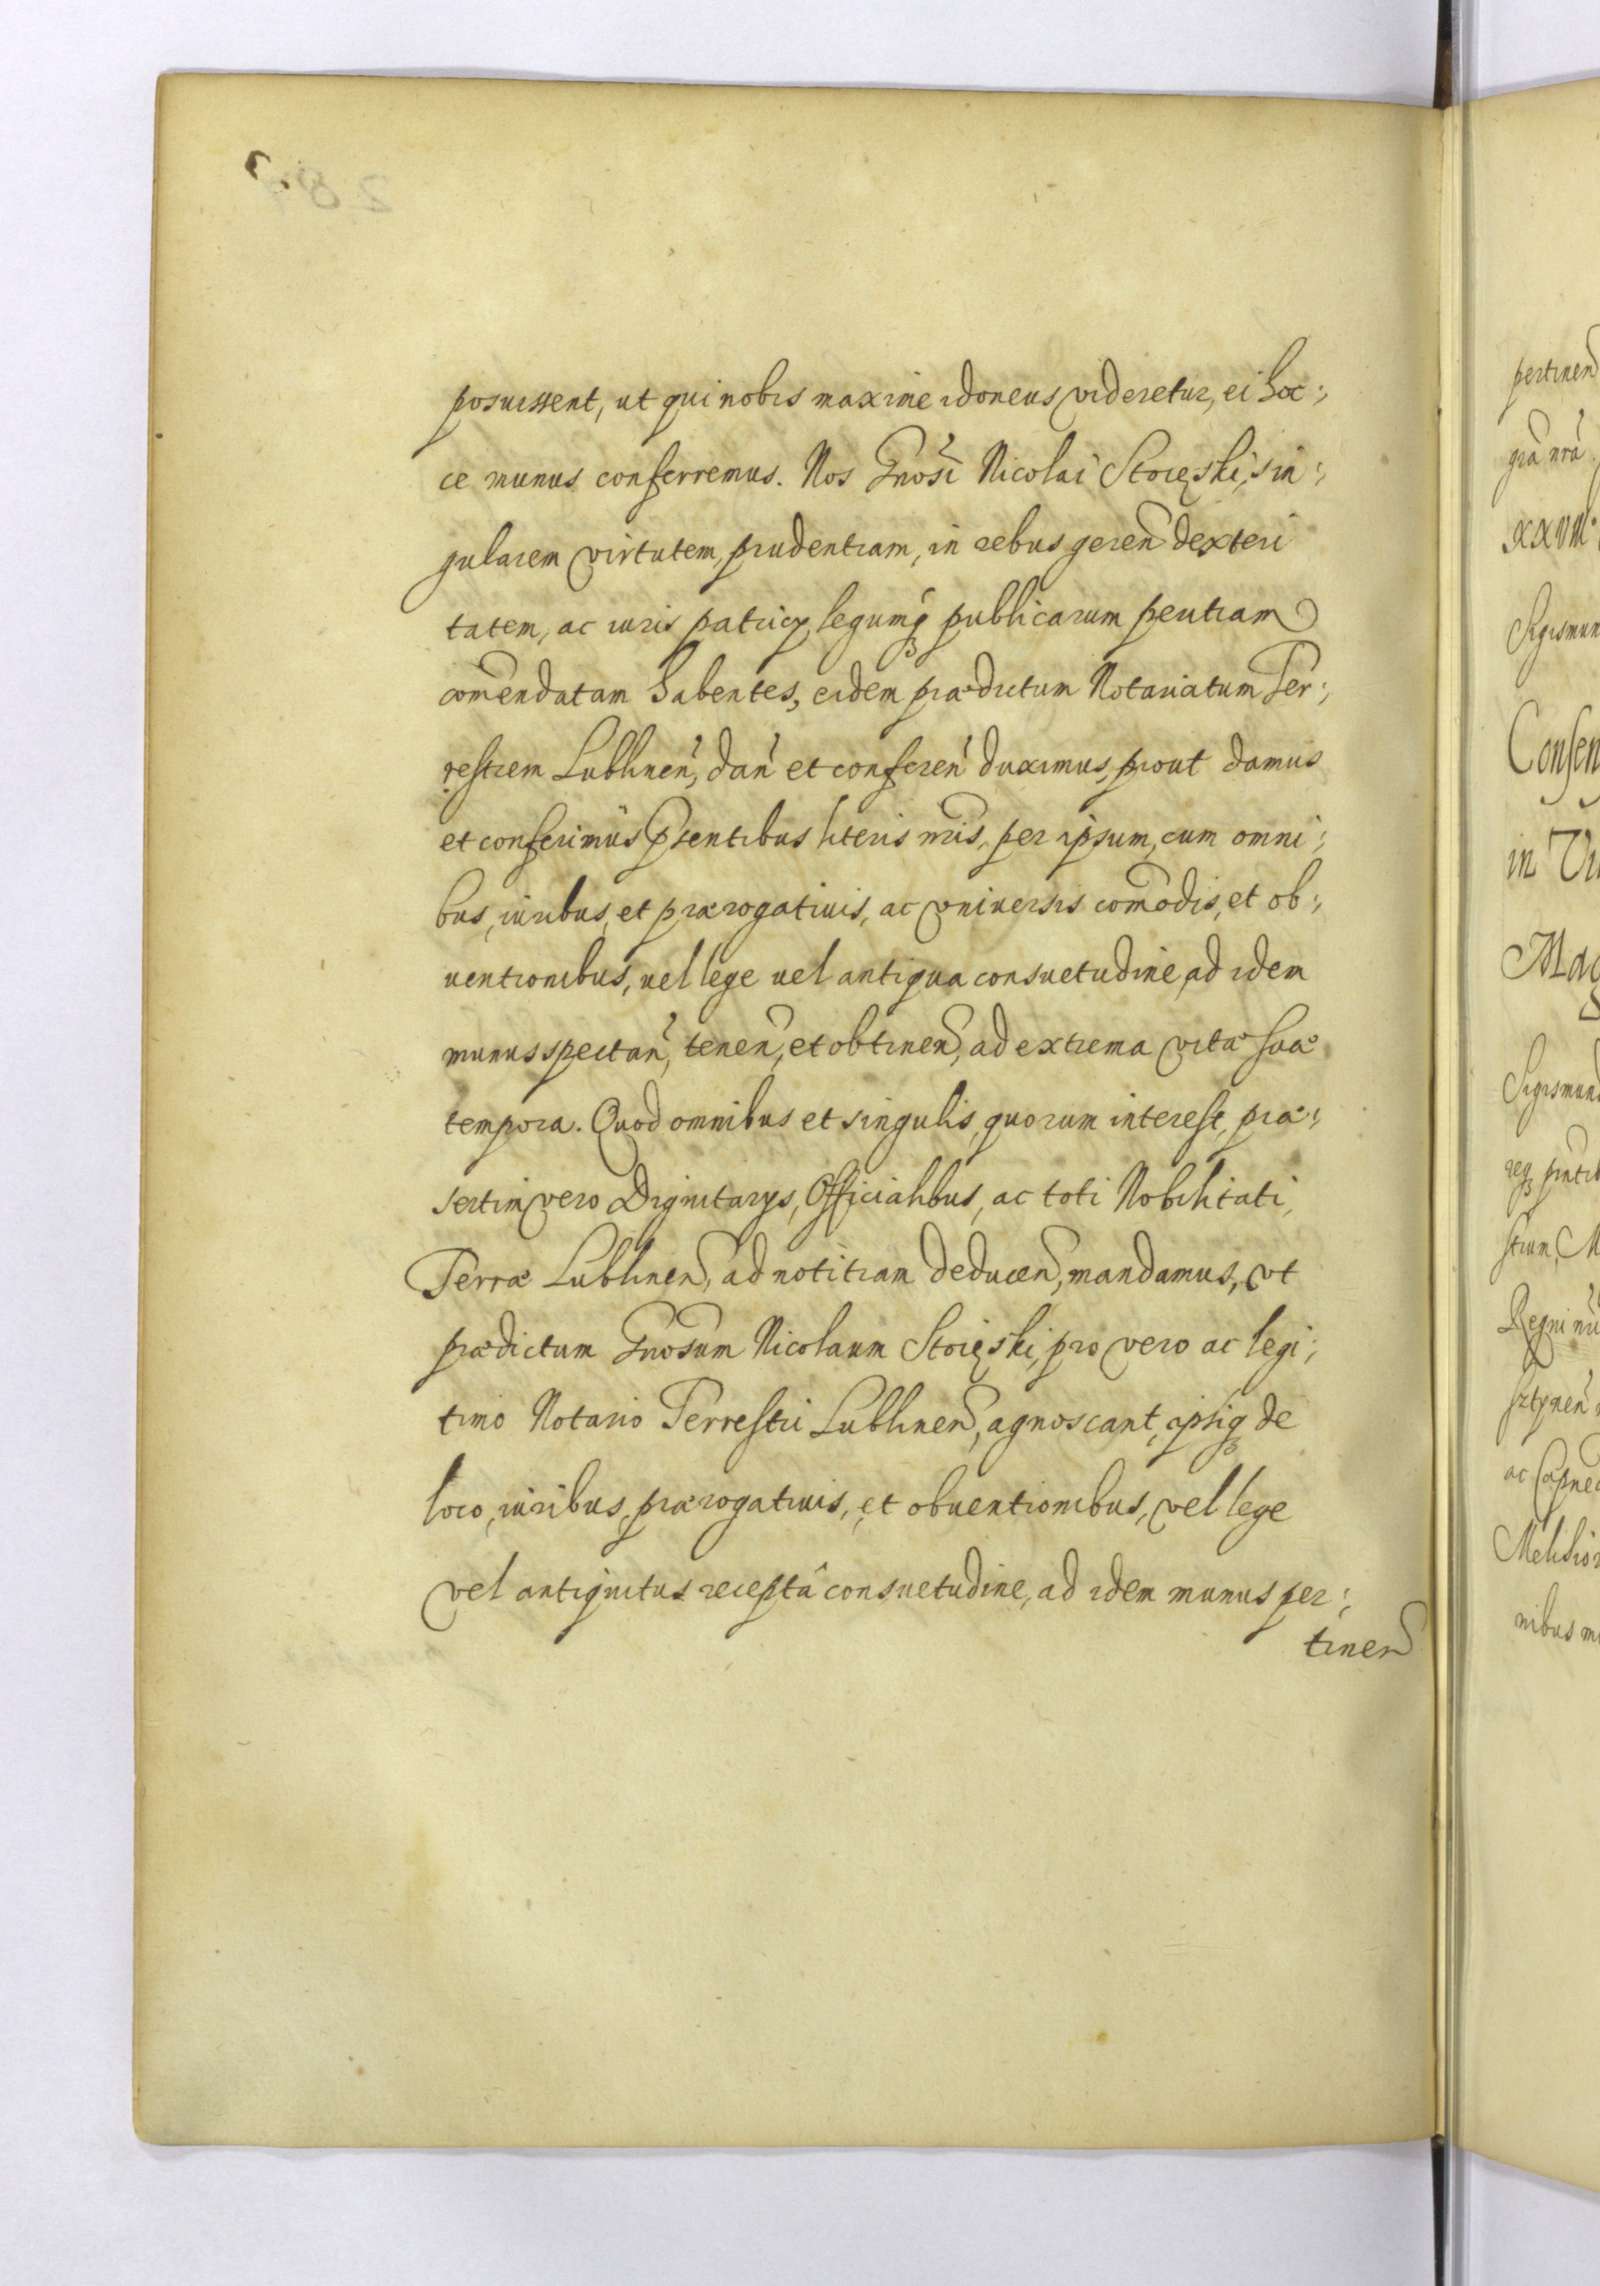 posuissent, ut qui nobis maxime idoneus videretur, ei hoc:,
ce munus conferremus. Nos Gnosi Nicolai Stoięski, sin:,
gularem virtutem, prudentiam, in rebus geren dexteri
tatem, ac iuris patrią, legumq publicarum peritiam
comendatam habentes, eidem prædictum Notariatum Ter:,
restrem Lublinen, dan et conferen duximus, prout damus
et conferimus pñtentibus literis nris, per ipsum, cum omni:,
bus, iuribus, et prærogatiuis, ac vniversis comodis, et ob:,
uentionibus, uel lege uel antiqua consuetudine, ad idem
munus spectan, tenen, et obtinen, ad extrema vitæ suæ
tempora. Quod omnibus et singulis, quorum interest, præ:,
sertim vero Dignitarys, Officialibus, ac toti Nobilitati,
Terræ Lublinen, ad notitiam deducen, mandamus, vt
prædictum Gnosum Nicolaum Stoięski, pro vero ac legi:,
timo Notario Terrestri Lublinen, agnoscant, ipsiq de
loco, iuribus, prærogatiuis, et obuentionibus, vel lege
vel antiquitus receptâ consuetudine, ad idem munus per:,
tinen
pertinen
gra nra
XXVIII
Sigismun
Consen
in Vi
Mag
Sigismund
regq pntib
strum, M
Regni
sztynen
ac Capnea
Melchior
nibus